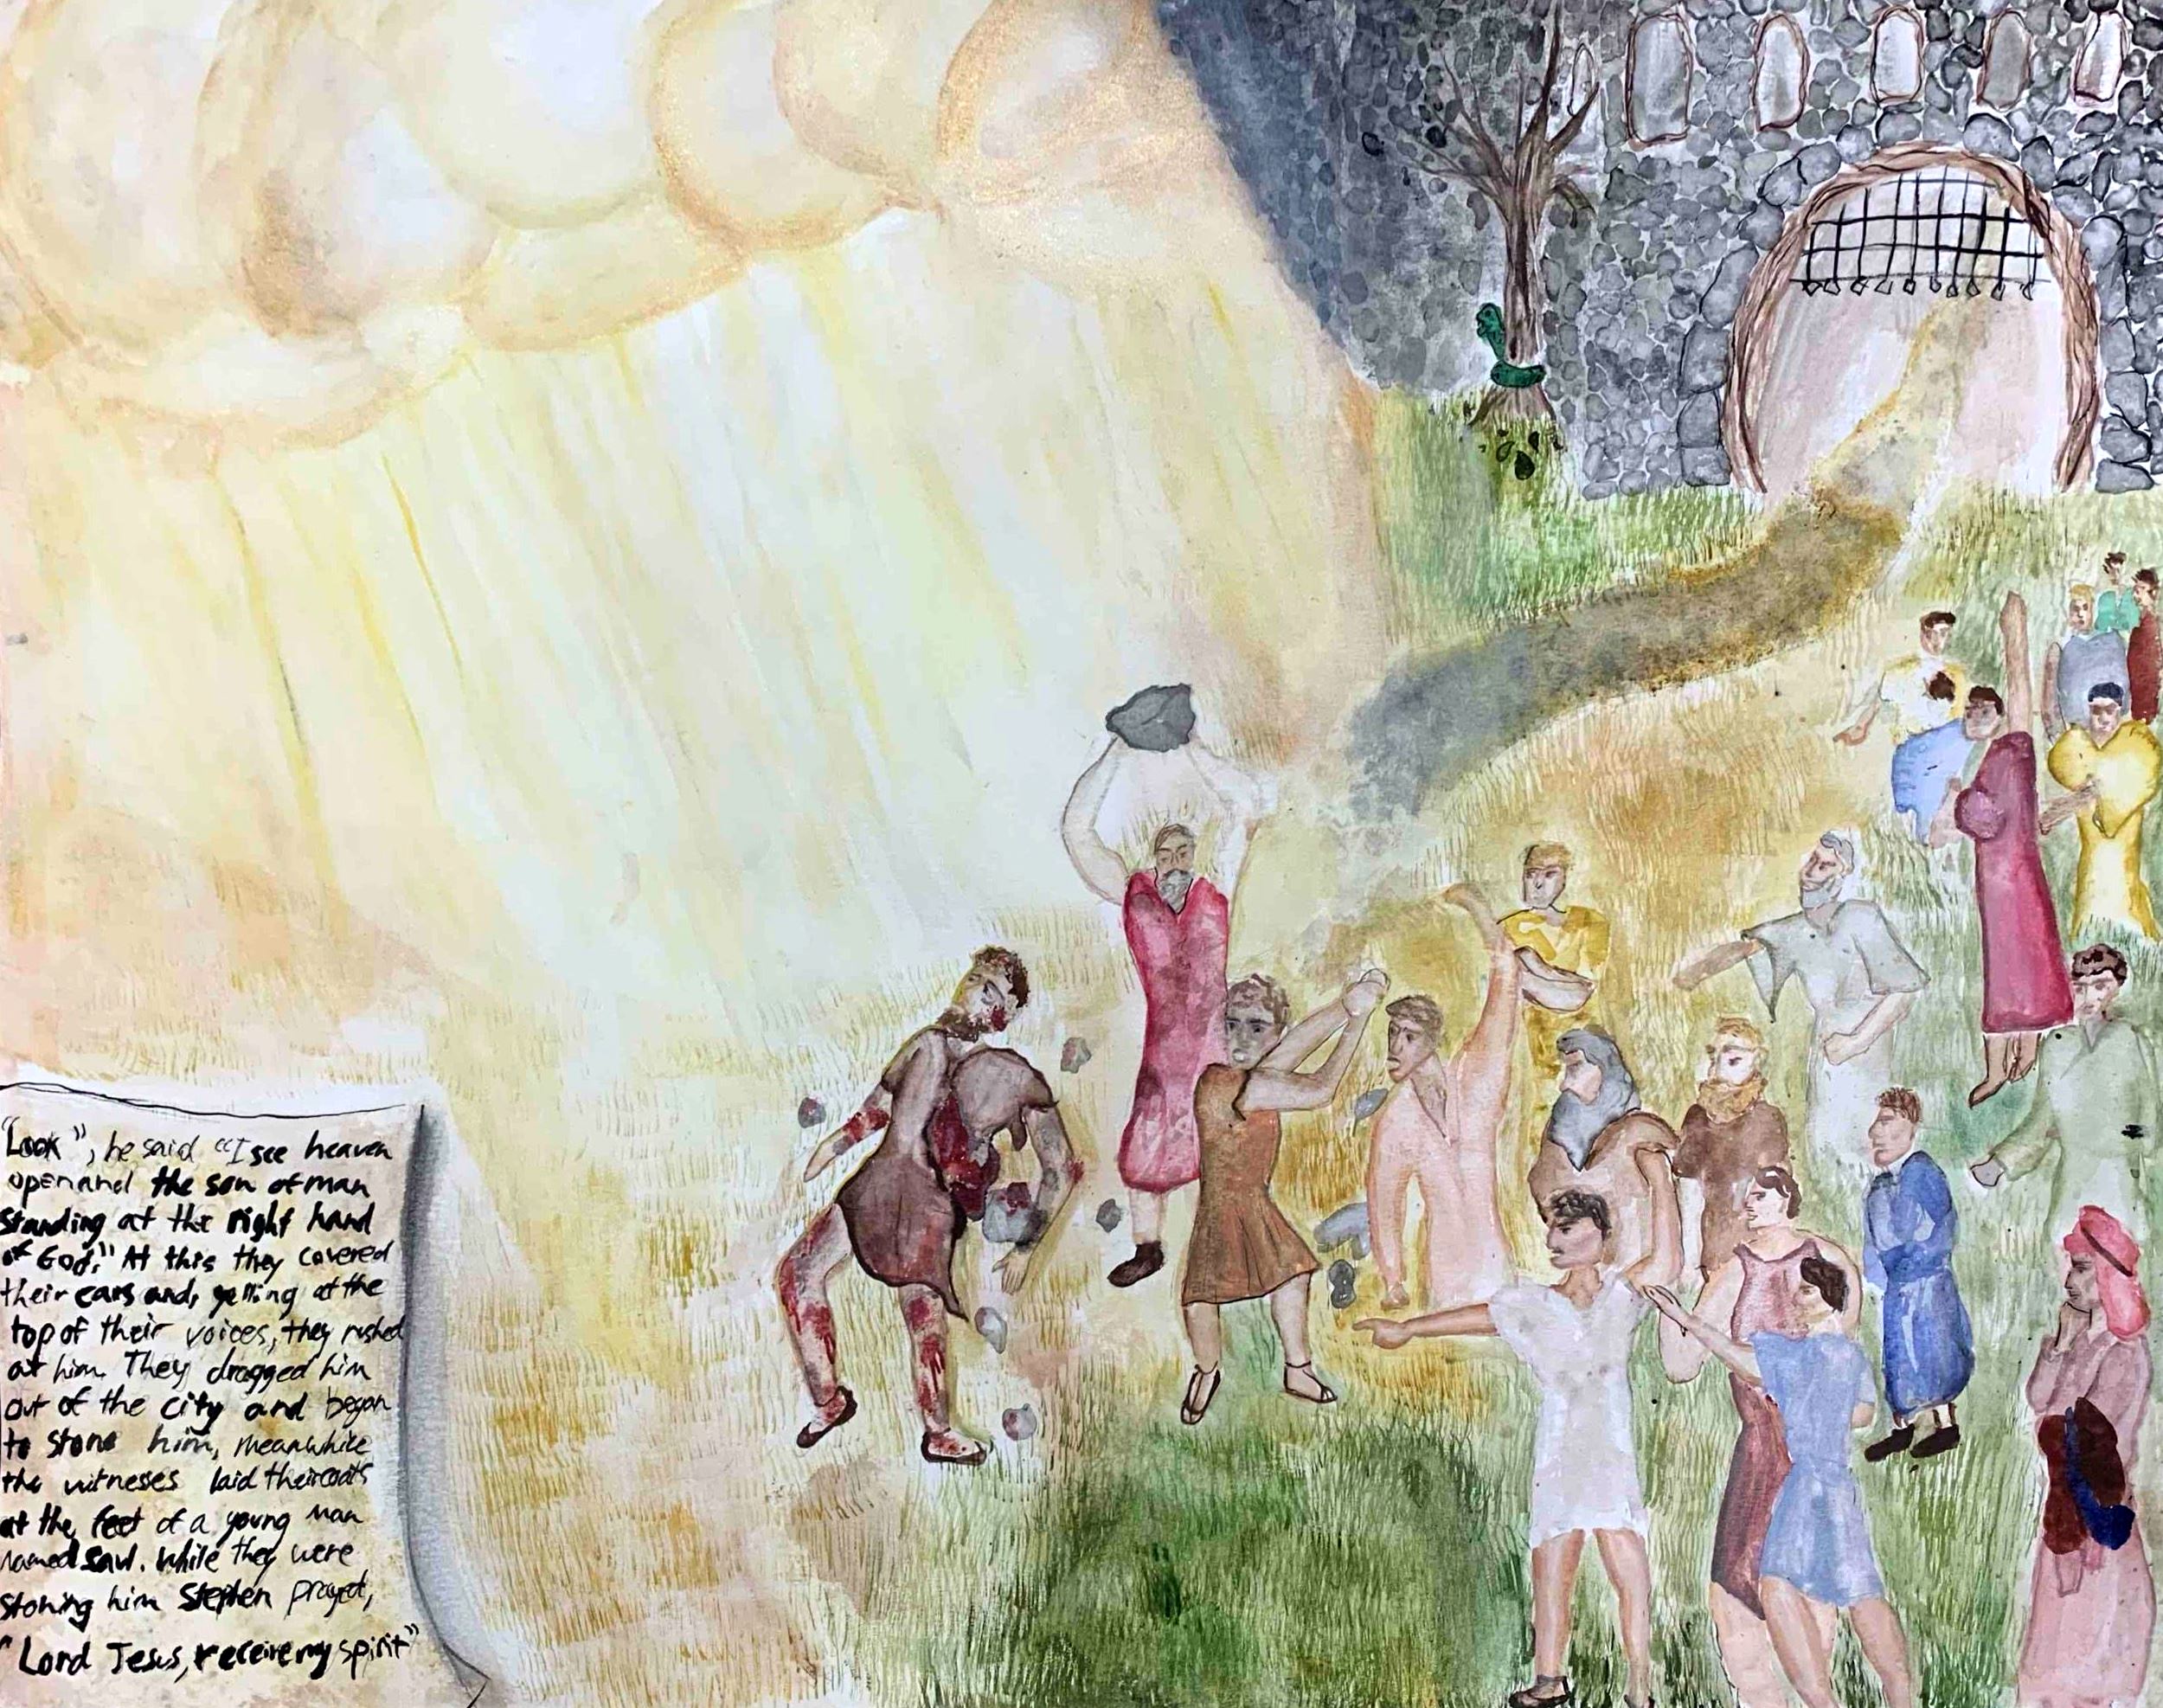 "Look", he said "I see heaven
open and the son of man
standing at the right hand
of God." At this they covered
their ears and, yelling at the
top of their voices, they rushed
at him. They dragged him
out of the city and began
to stone him, meanwhile
the witneses laid their coats
at the feet of a young man
named Saul. While they were
stoning him Stephen prayed,
"Lord Jesus, receive my spirit"